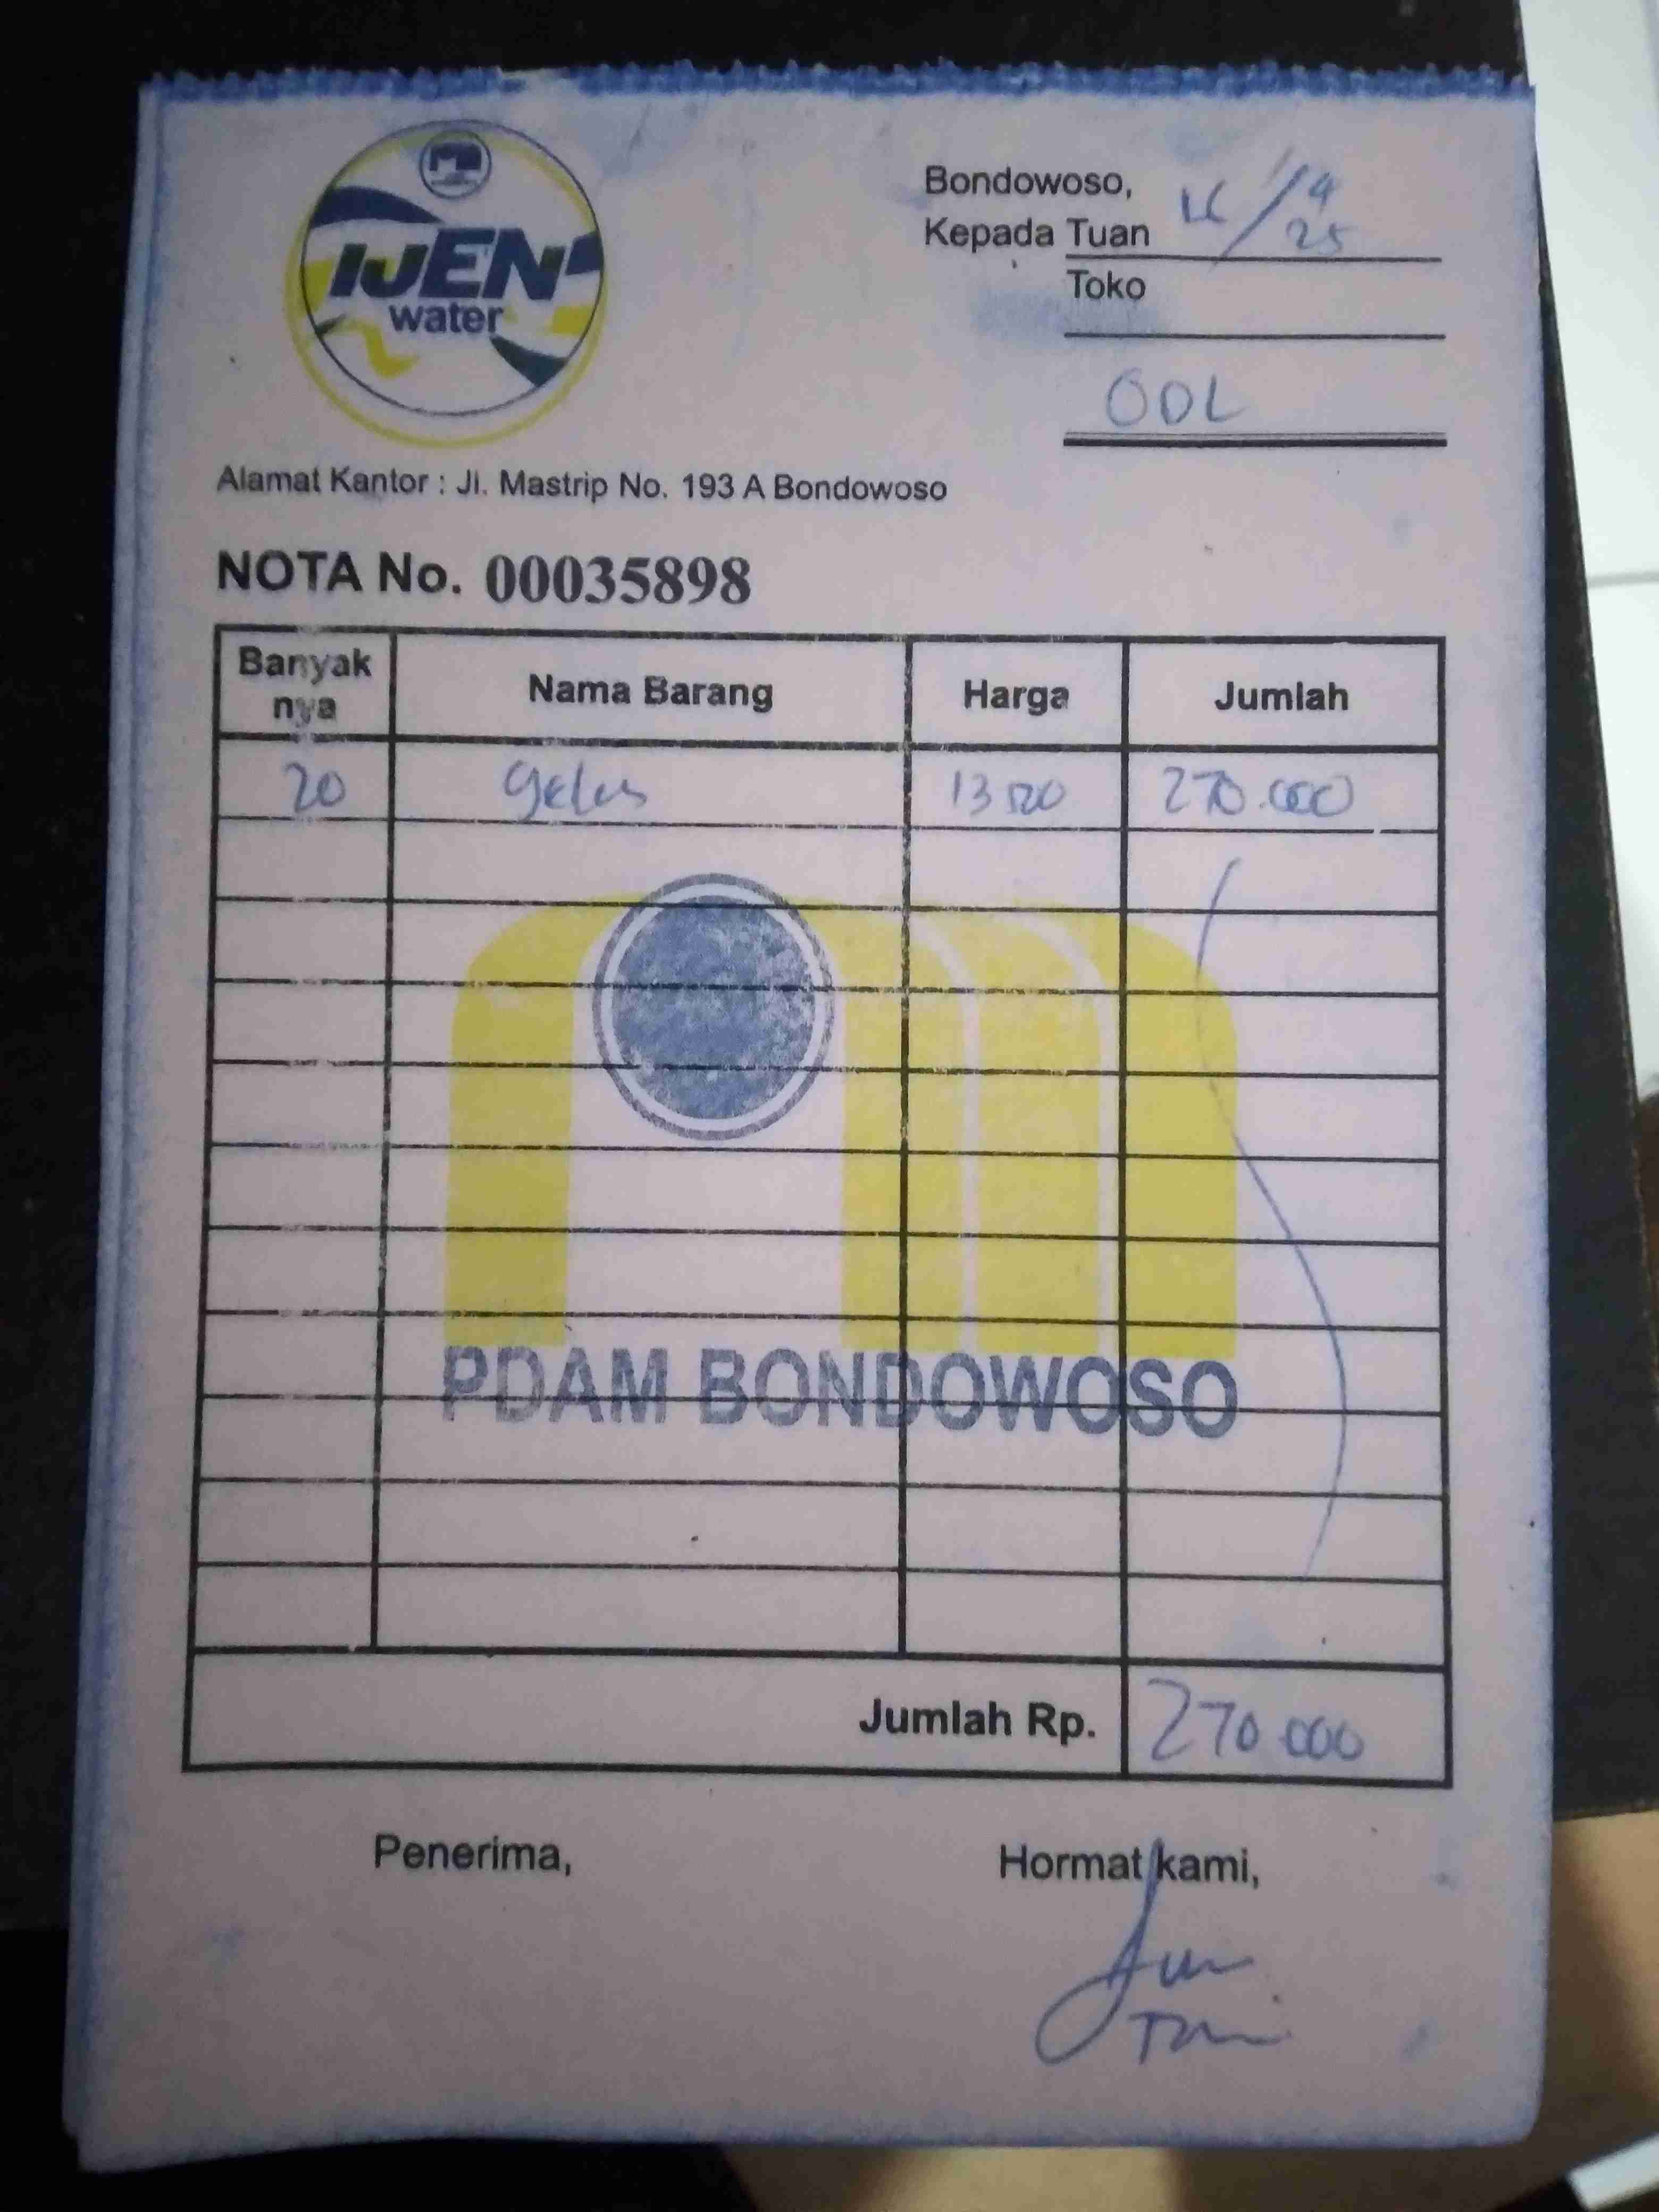 IJEN
water
Bondowoso,
Kepada Tuan
9
25
Toko
ODL
Alamat Kantor : Jl. Mastrip No. 193 A Bondowoso
NOTA No. 00035898
Banyak nya Nama Barang Harga Jumlah
20 gelas 13500 270.000
PDAM BONDOWOSO
Jumlah Rp. 270.000
Penerima, Hormat kami,